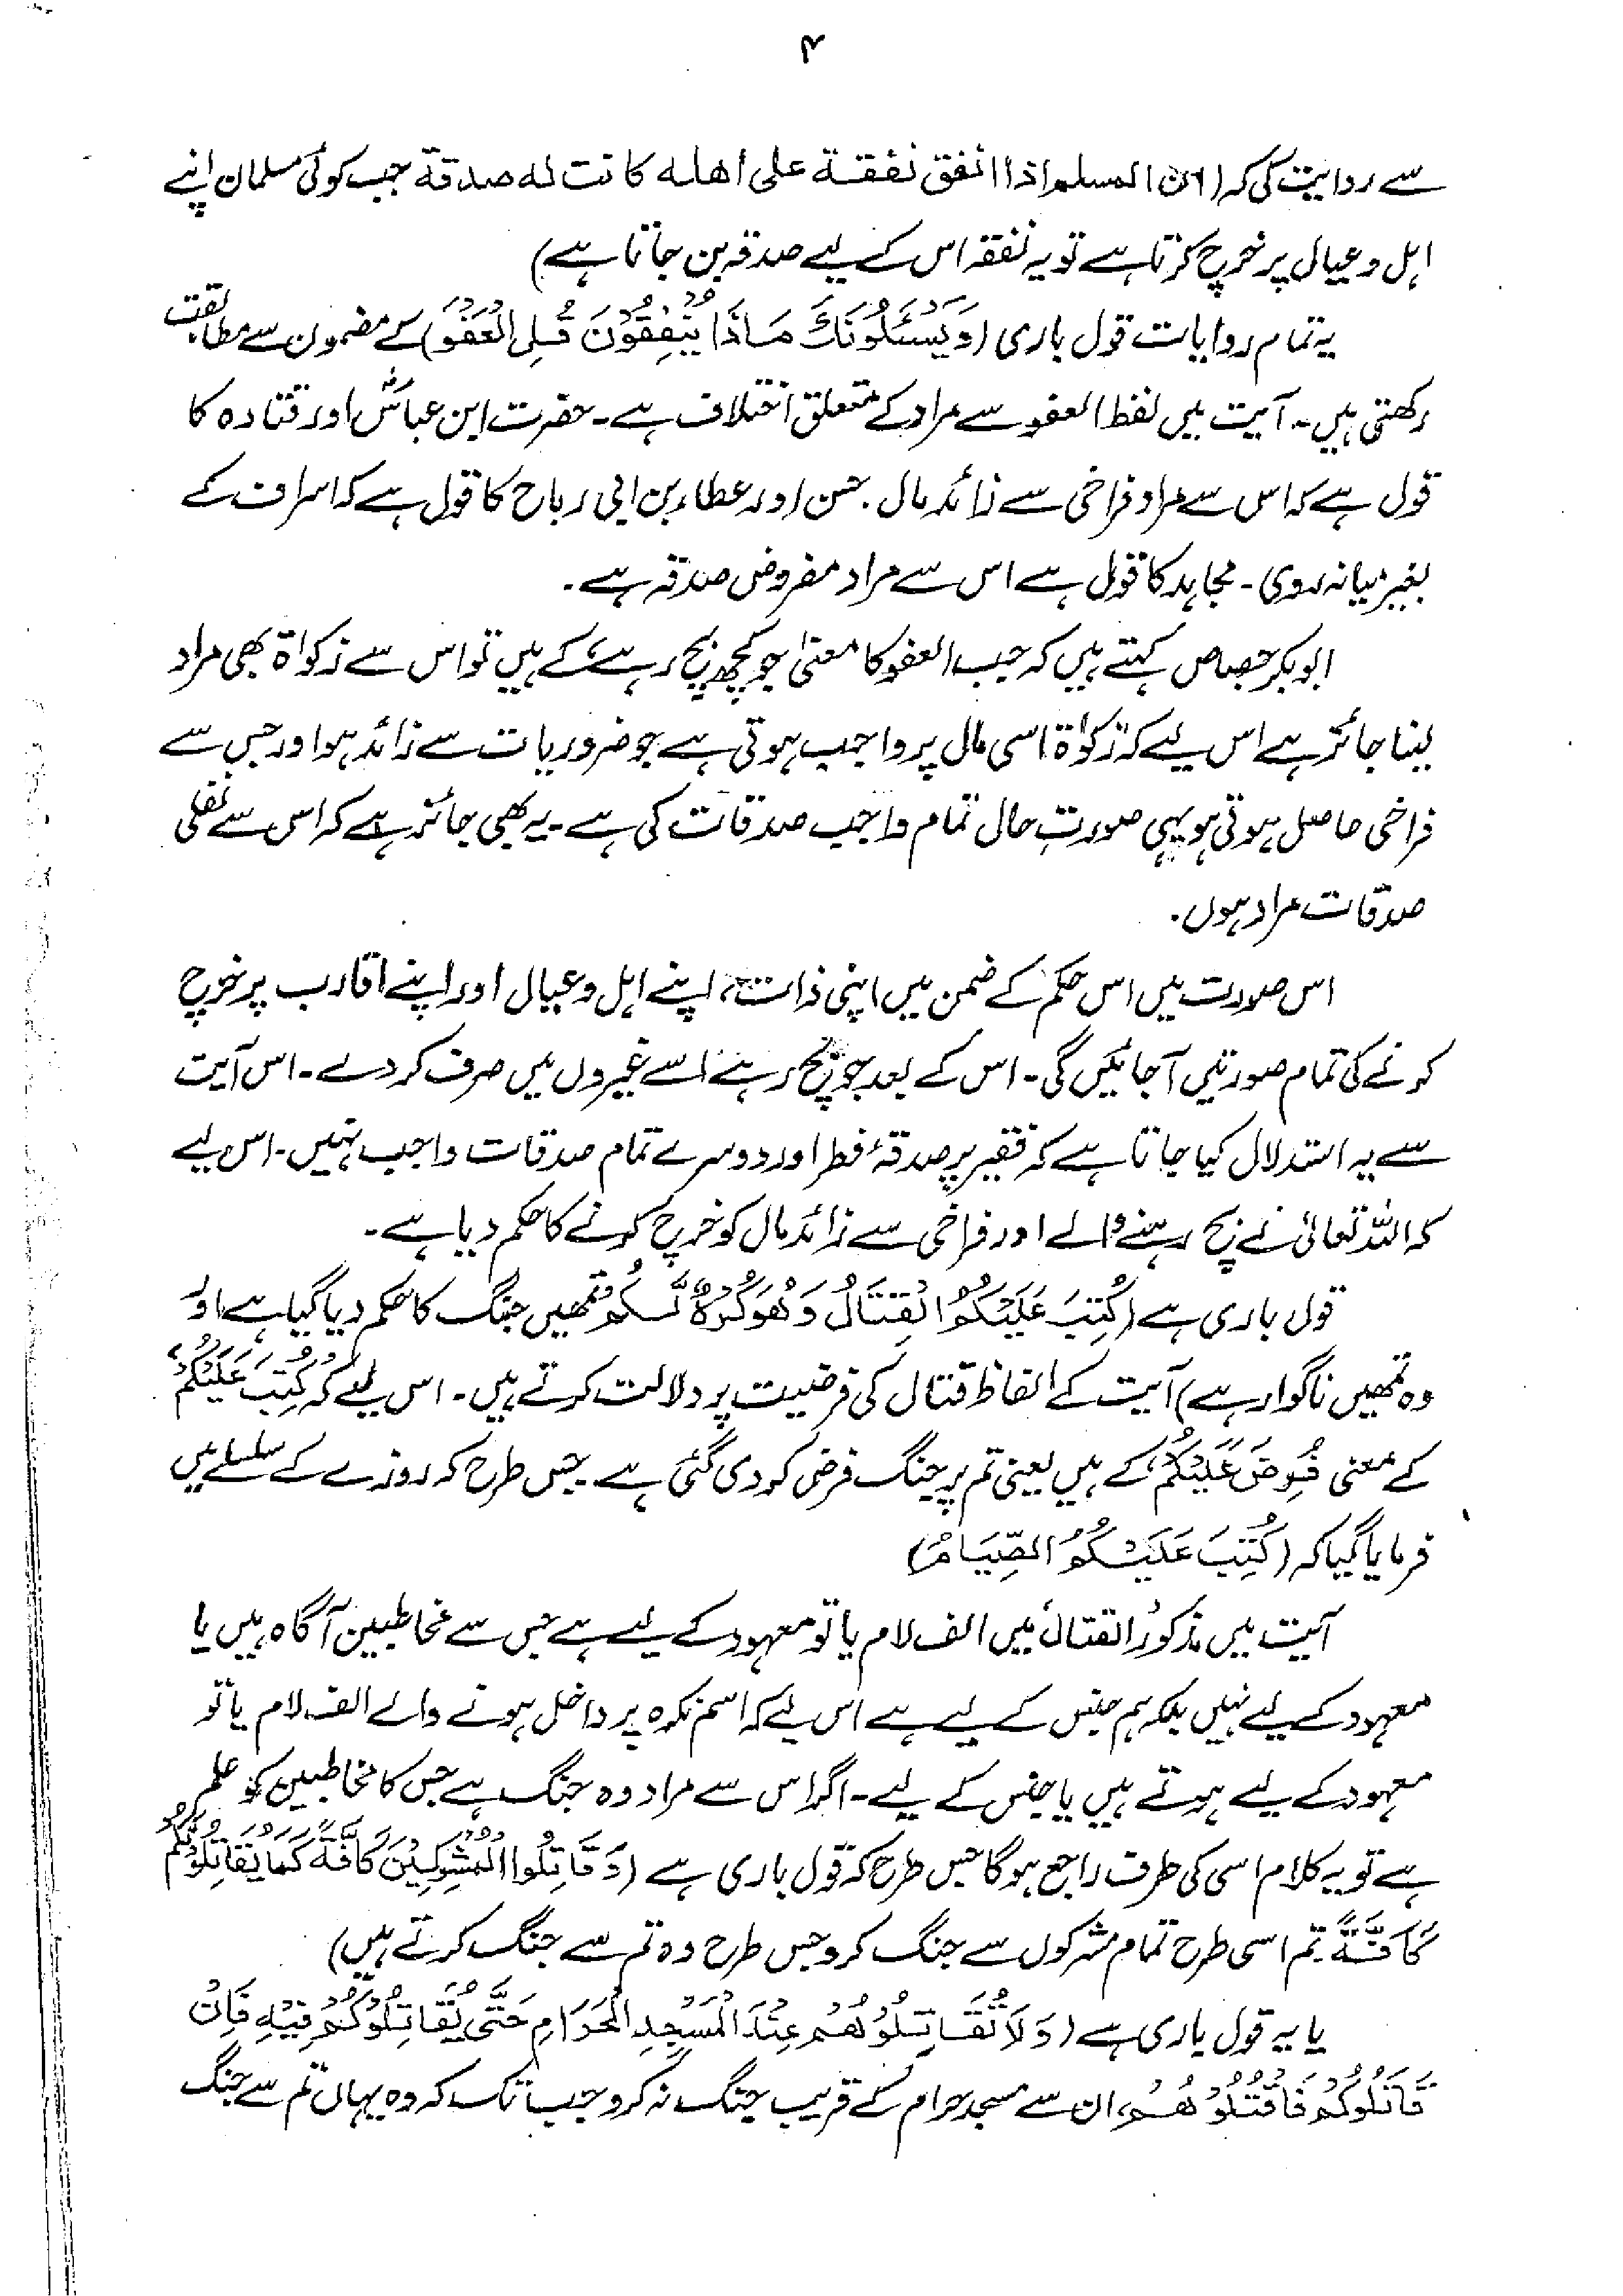 ۴
سے روایت کی کہ (ان المسلم اذا انفق نفقة علی اهله کانت له صدقة جب کوئی مسلمان اپنے
اہل و عیال پر خرچ کرتا ہے تو یہ نفقہ اس کے لیے صدقہ بن جاتا ہے)
یہ تمام روایات قول باری (وَیَسْئَلُوْنَكَ مَاذَا یُنْفِقُوْنَ قُلِ الْعَفْوَ) کے مضمون سے مطابقت
رکھتی ہیں۔ آیت میں لفظ العفو سے مراد کے متعلق اختلاف ہے۔ حضرت ابن عباسؓ اور قتادہ کا
قول ہے کہ اس سے مراد فراخی سے زائد مال۔ حسن اور عطاء بن ابی رباح کا قول ہے کہ اسراف کے
بغیر میانہ روی۔ مجاہد کا قول ہے اس سے مراد مفروض صدقہ ہے۔
ابوبکر جصاص کہتے ہیں کہ جب العفو کا معنیٰ جو کچھ بچ رہے، کے ہیں تو اس سے زکواۃ بھی مراد
لینا جائز ہے اس لیے کہ زکواۃ اسی مال پر واجب ہوتی ہے جو ضروریات سے زائد ہو اور جس سے
فراخی حاصل ہوتی ہو یہی صورتِ حال تمام واجب صدقات کی ہے۔ یہ بھی جائز ہے کہ اس سے نفلی
صدقات مراد ہوں۔
اس صورت میں اس حکم کے ضمن میں اپنی ذات، اپنے اہل و عیال اور اپنے اقارب پر خرچ
کرنے کی تمام صورتیں آجائیں گی۔ اس کے بعد جو بچ رہے اسے غیروں میں صرف کر دے۔ اس آیت
سے یہ استدلال کیا جاتا ہے کہ فقیر پر صدقۂ فطر اور دوسرے تمام صدقات واجب نہیں۔ اس لیے
کہ اللہ تعالیٰ نے بچ رہنے والے اور فراخی سے زائد مال کو خرچ کرنے کا حکم دیا ہے۔
قول باری ہے (کُتِبَ عَلَیْکُمُ الْقِتَالُ وَهُوَ کُرْهٌ لَّکُمْ تمھیں جنگ کا حکم دیا گیا ہے اور
وہ تمھیں ناگوار ہے) آیت کے الفاظ قتال کی فرضیت پر دلالت کرتے ہیں۔ اس لیے کہ کُتِبَ عَلَیْکُمْ،
کے معنی فُرِضَ عَلَیْکُمْ، کے ہیں یعنی تم پر جنگ فرض کر دی گئی ہے۔ جس طرح کہ روزے کے سلسلے میں
فرمایا گیا کہ (کُتِبَ عَلَیْکُمُ الصِّیَامُ)
آیت میں مذکور القتال میں الف لام یا تو معہود کے لیے ہے جس سے مخاطبین آگاہ ہیں یا
معہود کے لیے نہیں بلکہ ہم جنس کے لیے ہے اس لیے کہ اسم نکرہ پر داخل ہونے والے الف لام یا تو
معہود کے لیے ہوتے ہیں یا جنس کے لیے۔ اگر اس سے مراد وہ جنگ ہے جس کا مخاطبین کو علم
ہے تو یہ کلام اسی کی طرف راجع ہوگا جس طرح کہ قول باری ہے (وَقَاتِلُوا الْمُشْرِکِیْنَ کَافَّةً کَمَا یُقَاتِلُوْنَکُمْ
کَافَّةً تم اسی طرح تمام مشرکوں سے جنگ کرو جس طرح وہ تم سے جنگ کرتے ہیں)
یا یہ قول باری ہے (وَلَا تُقَاتِلُوْهُمْ عِنْدَ الْمَسْجِدِ الْحَرَامِ حَتّٰی یُقَاتِلُوْکُمْ فِیْهِ فَاِنْ
قَاتَلُوْکُمْ فَاقْتُلُوْهُمْ، ان سے مسجد حرام کے قریب جنگ نہ کرو جب تک کہ وہ یہاں تم سے جنگ